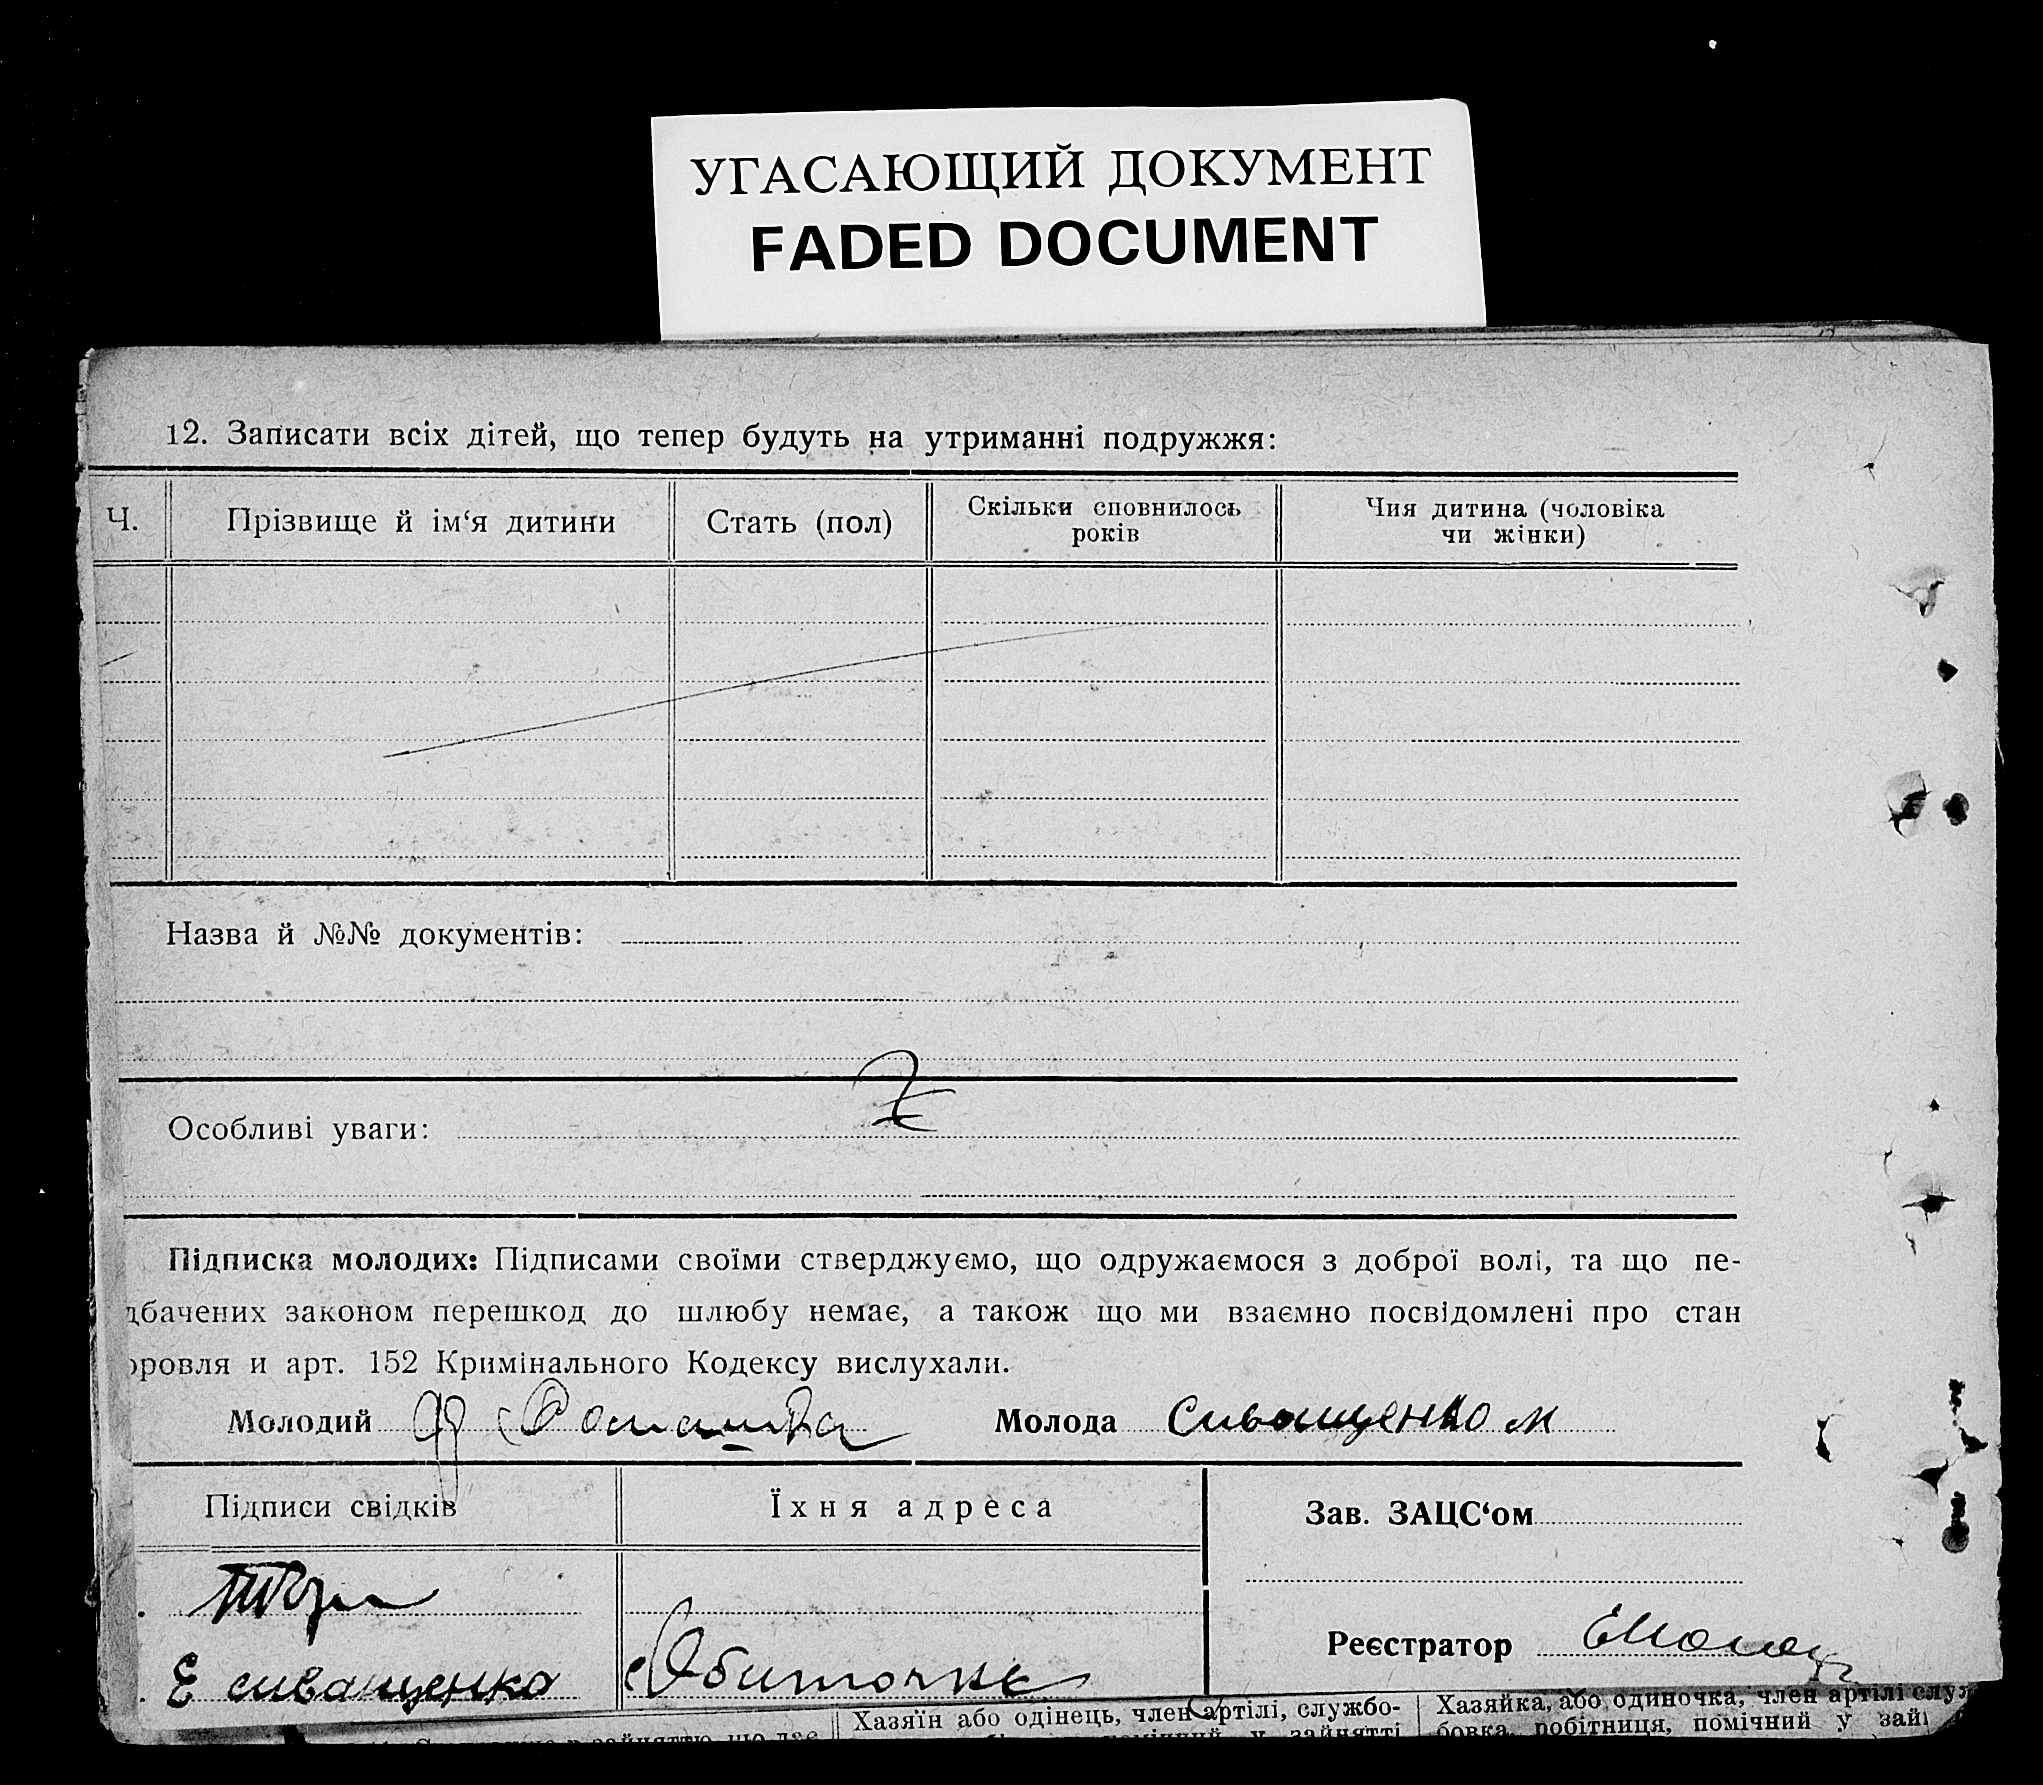 УГАСАЮЩИЙ ДОКУМЕНТ
FADED DOCUMENT
12. Записати всіх дітей, що тепер будуть на утриманні подружжя:
Ч.
Прізвище й ім‘я дитини
Стать (пол)
Скільки сповнилось
років
Чия дитина (чоловіка
чи жінки)
Назва й №№ документів:
Особливі уваги:
Підписка молодих: Підписами своїми стверджуємо, що одружаємося з доброї волі, та що пе-
дбачених законом перешкод до шлюбу немає, а також що ми взаємно посвідомлені про стан
оровля и арт. 152 Кримінального Кодексу вислухали.
Молодий
Молода Сиващенко м
Підписи свідків
Їхня адреса
Зав. ЗАЦС‘ом
Реєстратор
Е сиващенко Обиточне
Хазяїн або одінець, член артілі, службо-
Хазяйка, або одиночка, член артілі служ
бовка, робітниця, помічний у зай
у зайнятті